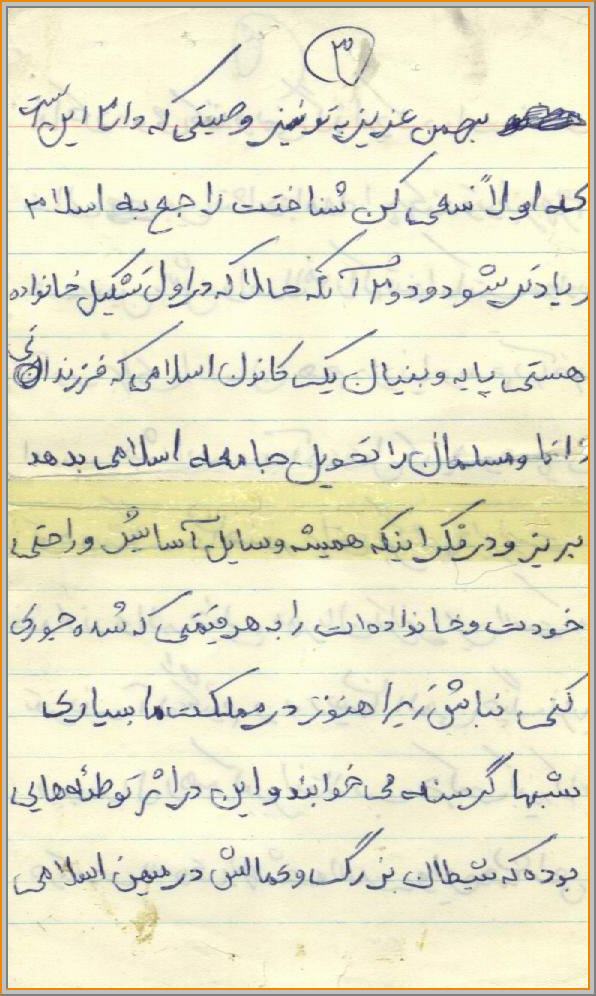 ۳
بهمن عزیز به تو نیز وصیتی که دارم این است
که اولاً سعی کن شناختت راجع به اسلام
زیادتر شود و دوم آنکه حالا که در اول تشکیل خانواده
هستی پایه و بنیان یک کانون اسلامی که فرزندانی
دانا و مسلمان را تحویل جامعه اسلامی بدهد
بریز و در فکر اینکه همیشه وسایل آسایش و راحتی
خودت و خانواده‌ات را به هر قیمتی که شده جوری
کنی نباش زیرا هنوز در مملکت ما بسیاری
شبها گرسنه می خوابند و این در اثر توطئه هایی
بوده که شیطان بزرگ و عمالش در میهن اسلامی